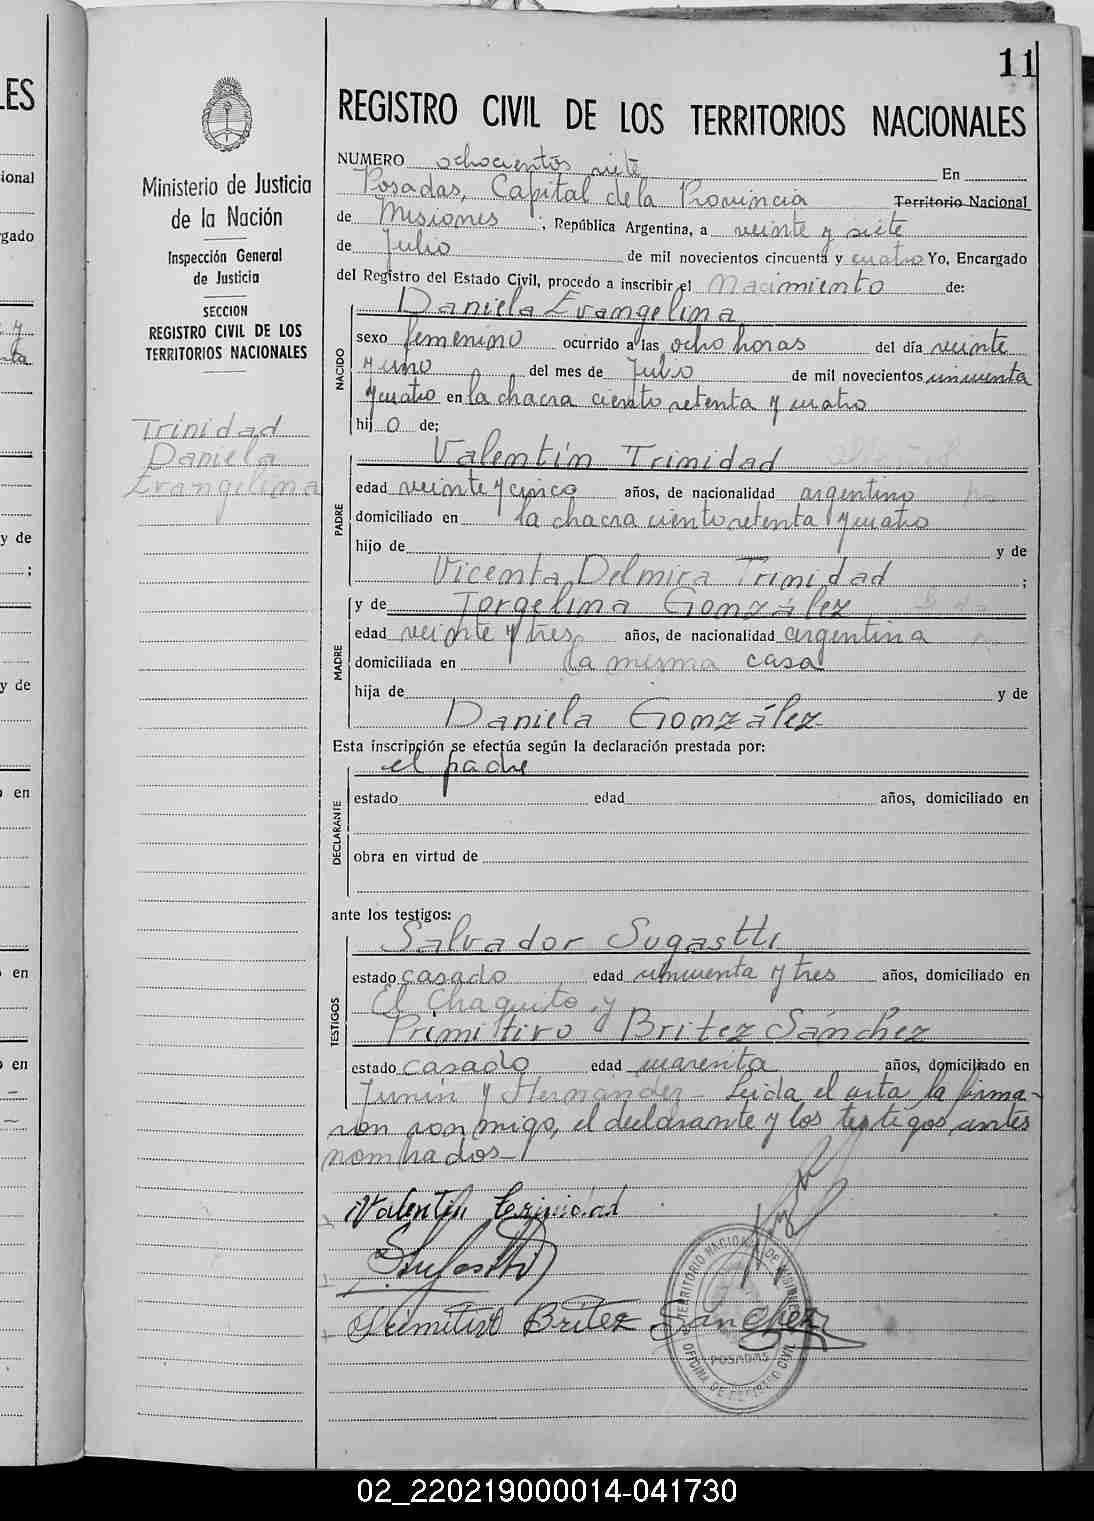 11
REGISTRO CIVIL DE LOS TERRITORIOS NACIONALES
Ministerio de Justicia
de la Nación
Inspección General
de Justicia
SECCION
REGISTRO CIVIL DE LOS
TERRITORIOS NACIONALES
Trinidad
Daniela
Evangelina
NUMERO ochocientos siete En
Posadas, Capital de la Provincia Territorio Nacional
de Misiones ; República Argentina, a veinte y siete
de Julio de mil novecientos cincuenta y cuatro Yo, Encargado
del Registro del Estado Civil, procedo a inscribir el Nacimiento de:
NACIDO
Daniela Evangelina
sexo femenino ocurrido a las ocho horas del día veinte
y uno del mes de Julio de mil novecientos cincuenta
y cuatro en la chacra ciento setenta y cuatro
hij o de:
PADRE
Valentín Trinidad
edad veinte y cinco años, de nacionalidad argentino
domiciliado en la chacra ciento setenta y cuatro
hijo de y de
Vicenta Delmira Trinidad ;
MADRE
y de Jorgelina González
edad veinte y tres años, de nacionalidad argentina
domiciliada en la misma casa
hija de y de
Daniela González
Esta inscripción se efectúa según la declaración prestada por:
DECLARANTE
el padre
estado edad años, domiciliado en
obra en virtud de
ante los testigos:
TESTIGOS
Salvador Sugastti
estado casado edad cincuenta y tres años, domiciliado en
El Chaquito y
Primitivo Britez Sánchez
estado casado edad cuarenta años, domiciliado en
Junín y Hernández - Leida el acta la firma-
ron conmigo, el declarante y los testigos antes
nombrados -
Valentin Trinidad
Sugastti
Primitivo Britez Sanchez
TERRITORIO NACIONAL DE MISIONES
POSADAS
OFICINA DE REGISTRO CIVIL
LES
ional
gado
y de
;
y de
en
en
en
02_220219000014-041730